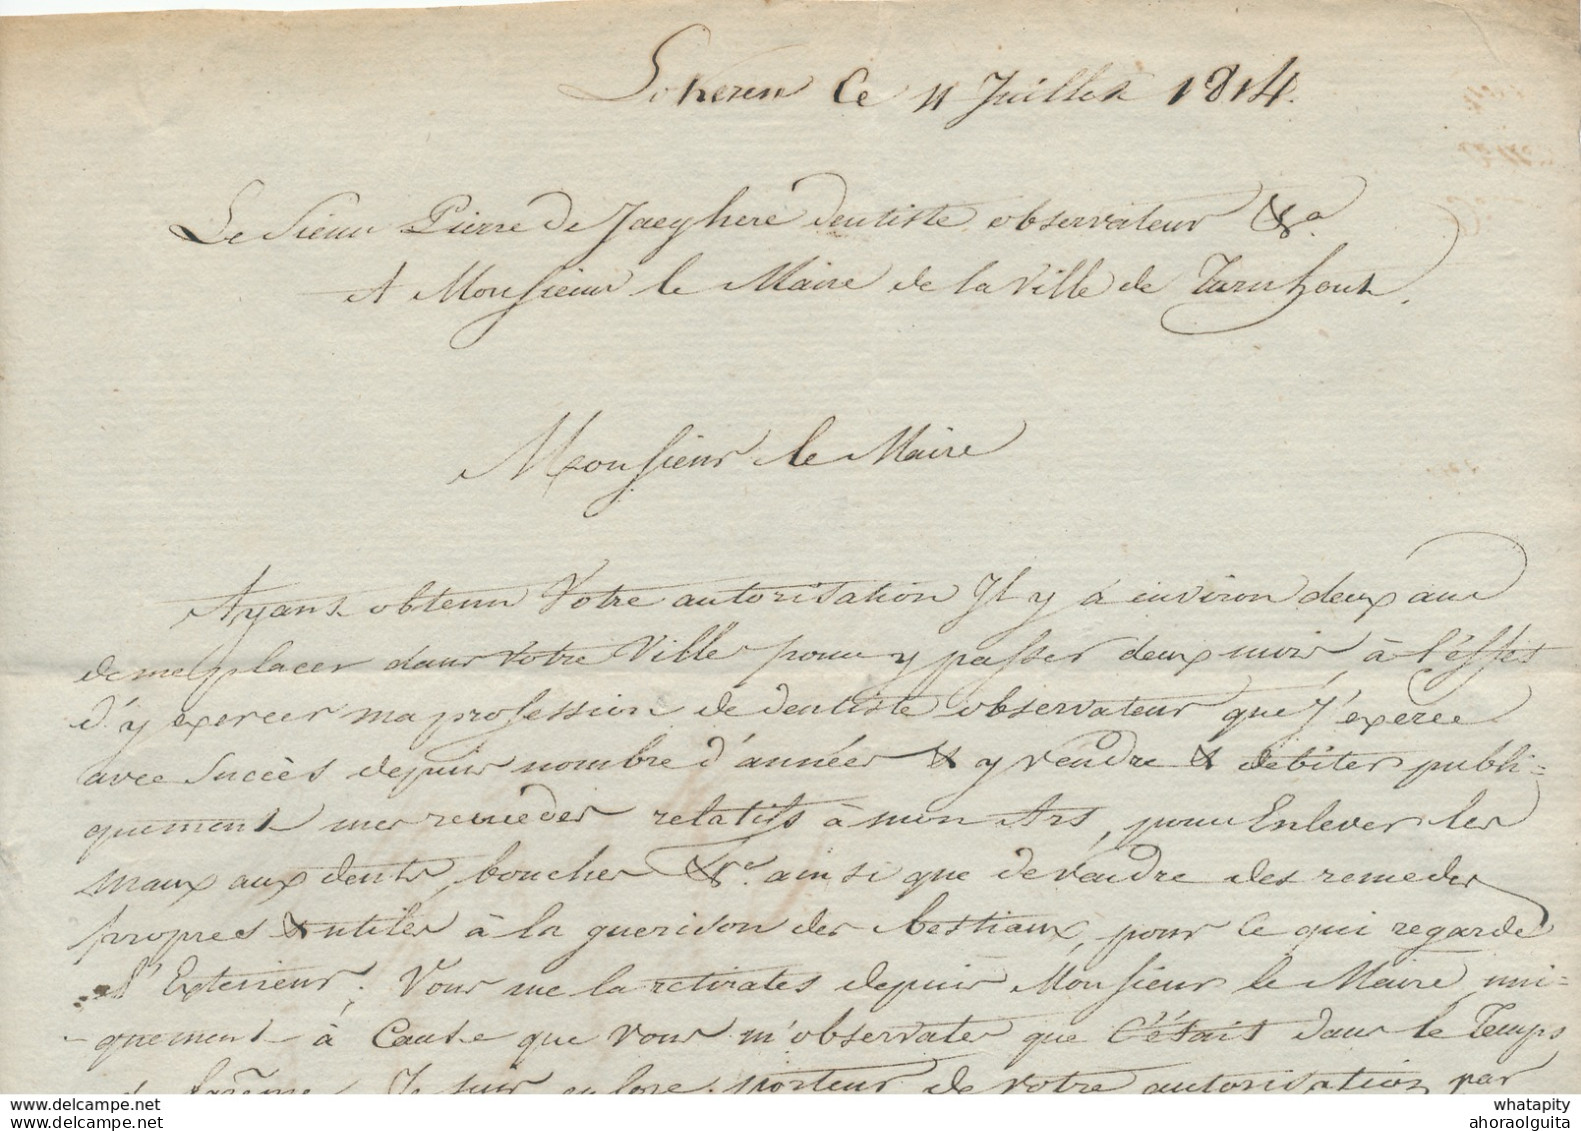 Lokeren Ce 11 Juillet 1814.
Le Sieur Pierre de Jaeghere dentiste observateur &a.
A Monsieur le Maire de la Ville de Turnhout.
Monsieur le Maire
Ayant obtenu Votre autorisation Il y à environ deux ans
de me placer dans votre Ville pour y passer deux mois à l'éffet
d'y exercer ma profession de dentiste observateur que J'exerce
avec Succès depuis nombre d'années & y vendre & debiter publi=
quement mes remedes relatifs à mon Art, pour Enlever les
maux aux dents, bouches &a. ainsi que de vendre des remedes
propres & utiles à la guerison des bestiaux, pour Ce qui regarde
l'Exterieur; Vous me la retirates depuis Monsieur le Maire, uni=
quement à Cause que vous m'observates que C'était dans le Temps
de Carême, Je suis encore porteur de votre autorisation par
ahoraolguita.delcampe.net
whatapity
ahoraolguita